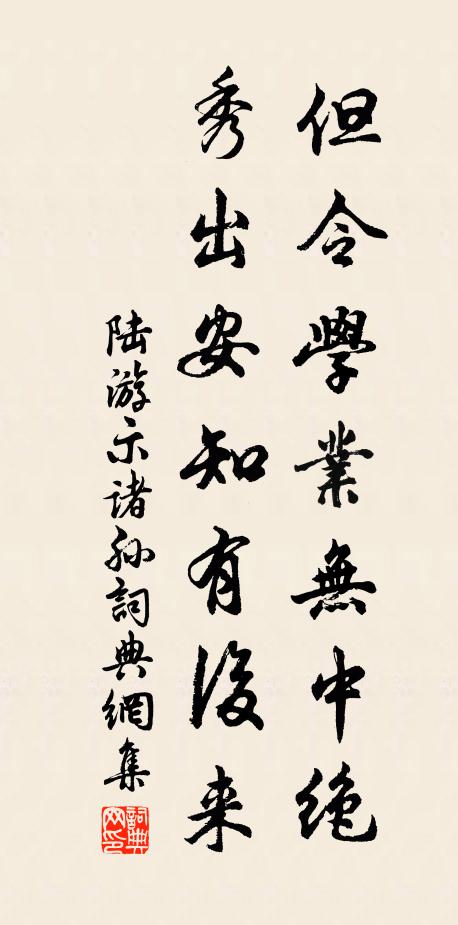 但令學業無中絶
秀出安知有後来
陆游示諸孙詞典網集
詞典
网印